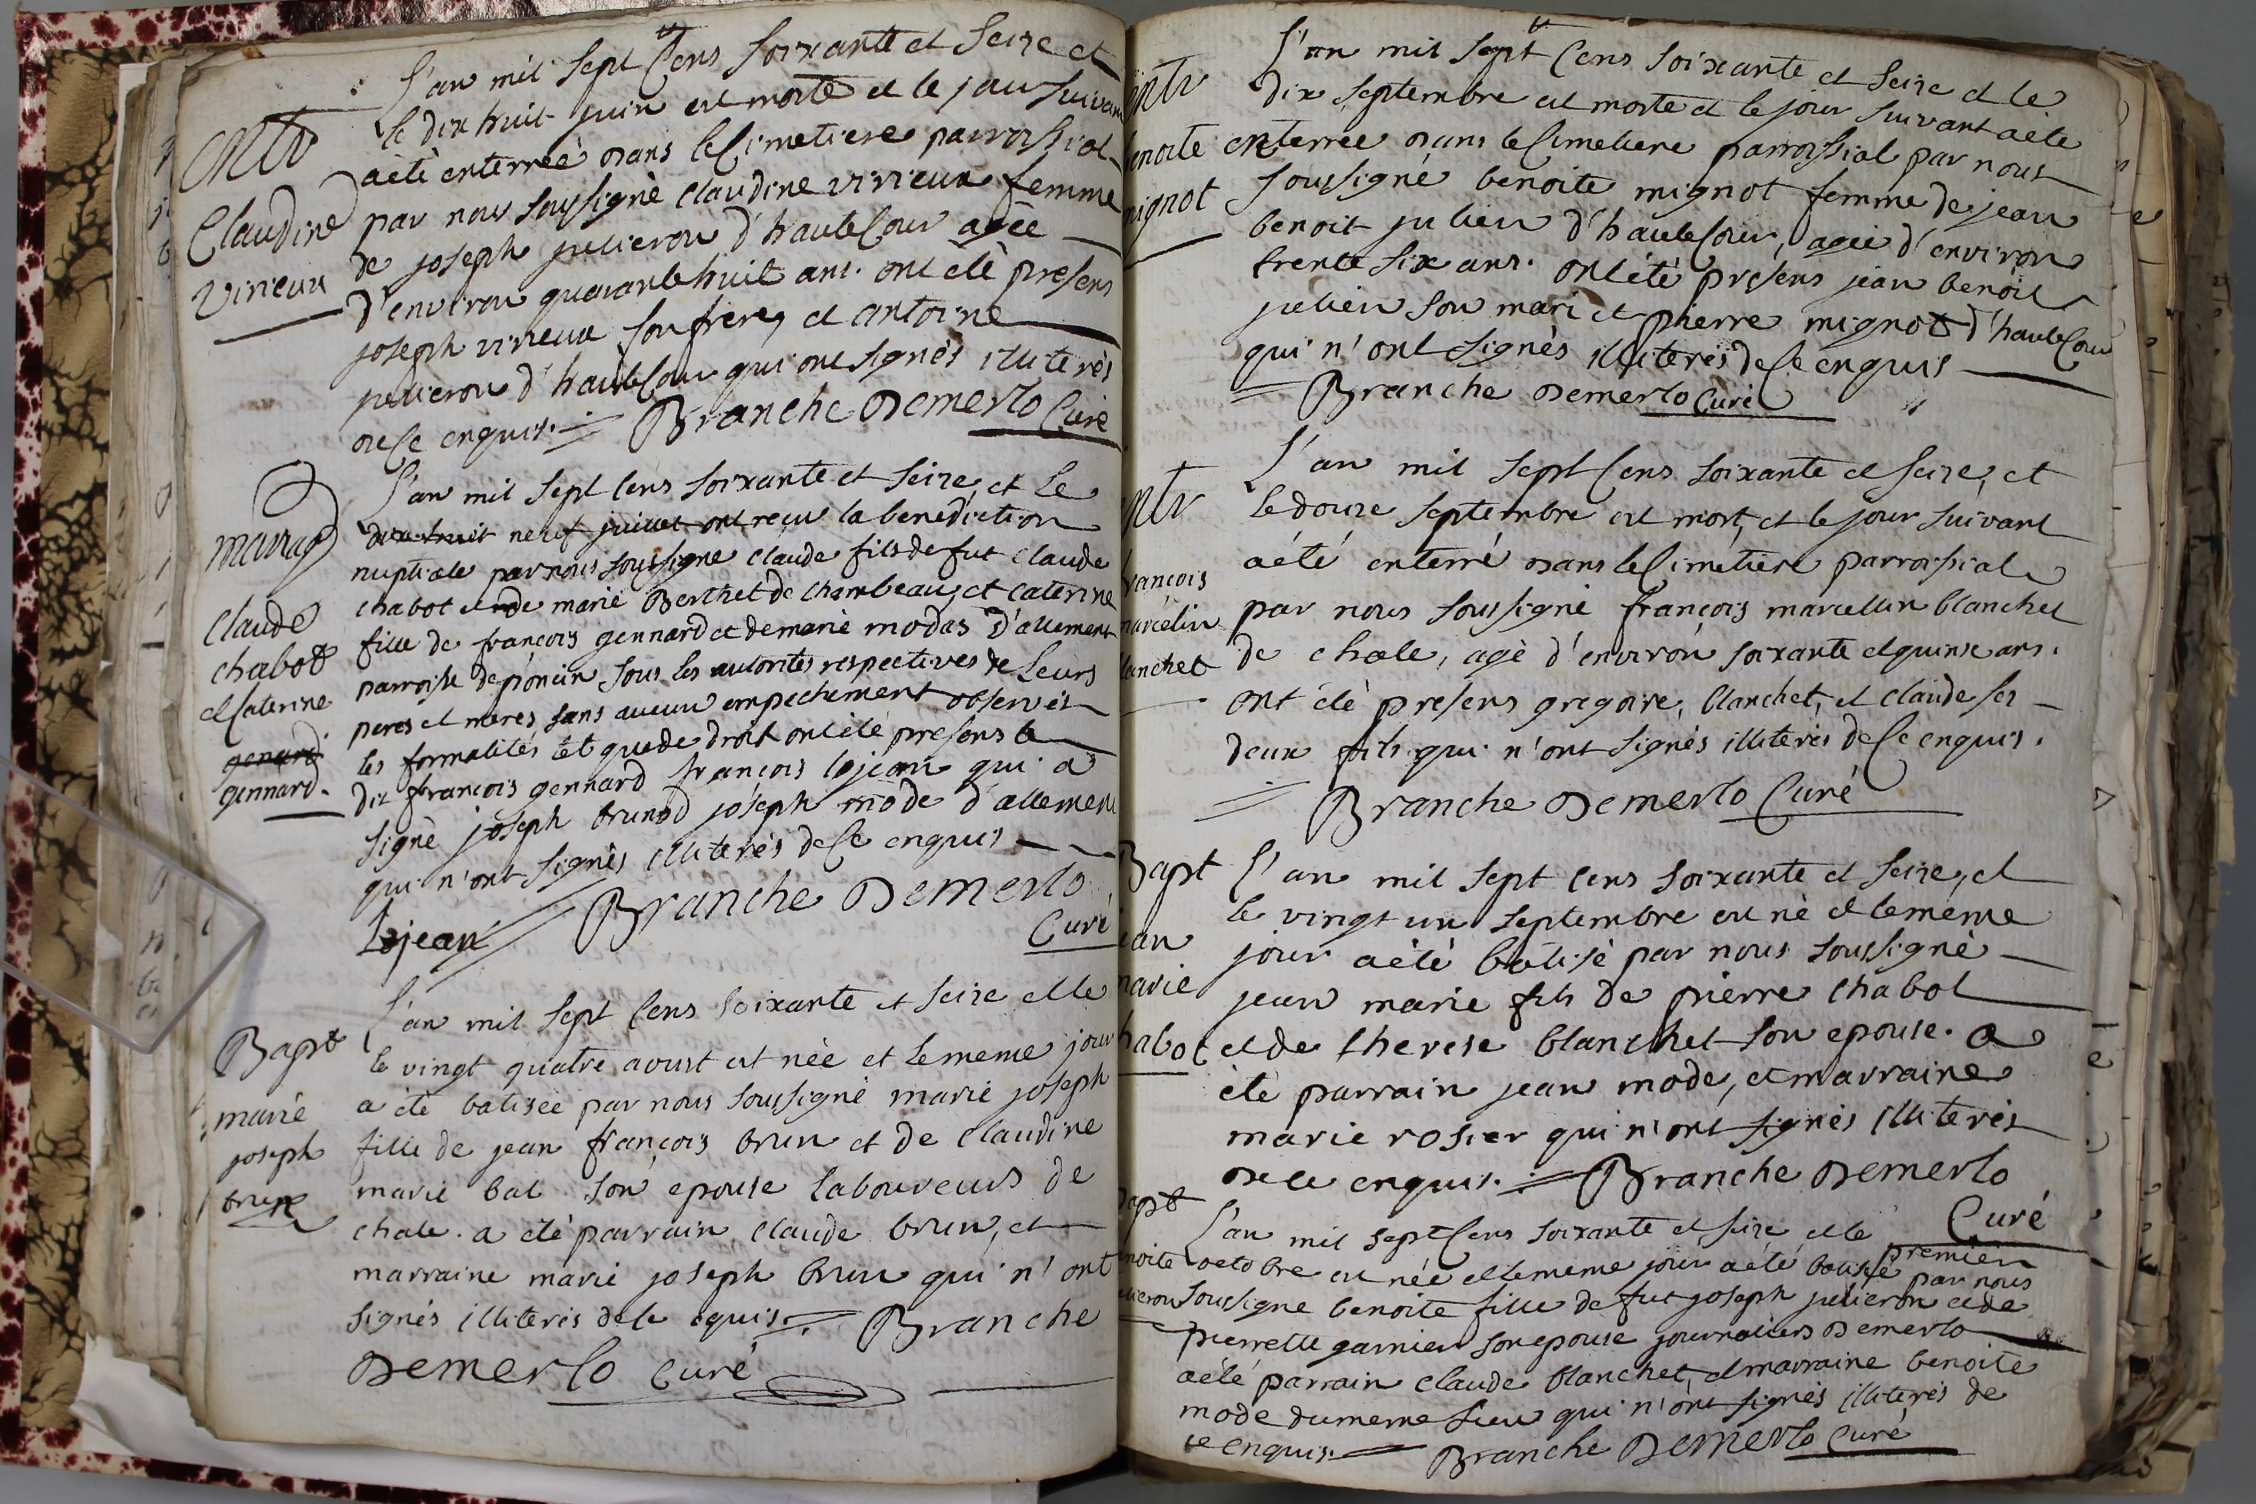 L'an mil sept Cens soixante et seize et
le dix huit juin est morte et le jour suivant
aèté enterreé dans le Cimetiere parroissial
par nous soussigné Claudine virieux femme
de joseph juilieron d'hauteCour ageé
d'environ quarantehuit ans. ont été presens
joseph virieux son frere, et antoine
juilieron d'hauteCour qui ont signés illiterés
de Ce enquis. Branche Demerlo Curé
entr
Claudine
virieux
L'an mil sept Cens soixante et seize et le
dix huit neuf juillet ont recu la benediction
nuptiale par nous soussigné claude fils de fut claude
chabot et de marie Berthet de chambeau, et caterine
fille de françois gennard et de marie modas d'allement
parroisse de poncin sous les autorités respectives de leurs
peres et meres sans aucun empechement observés
les formalités tel que de droit ont été presens le
dit françois gennard françois lojean qui a
signé joseph brunod joseph mode d'allement
qui n'ont signés illiterés de Ce enquis
Lojean Branche Demerlo
Curé
mariag
Claude
chabot
et Caterine
genard
gennard.
L'an mil sept Cens soixante et seize et le
le vingt quatre aoust est née et le meme jour
a été batiseé par nous soussigné marie joseph
fille de jean françois brun et de Claudine
marie bal son epouse laboureurs de
chale. a été parrain claude brun, et
marraine marie joseph brun qui n'ont
signés illiterés de Ce equis. Branche
Demerlo Curé
Bapt
marie
joseph
brun
L'an mil sept Cens soixante et seize et le
dix septembre est morte et le jour suivant aété
enterrée dans le Cimetiere parroissial par nous
soussigné benoite mignot femme de jean
benoit julien d'hauteCour, ageé d'environ
trente six ans. ont été presens jean benoit
julien son mari et pierre mignot d'hauteCour
qui n'ont signés illiterés de Ce enquis
Branche Demerlo Curé
entr
benoite
mignot
L'an mil sept Cens soixante et seize, et
le douze septembre est mort, et le jour suivant
aété enterré dans le Cimetiere parroissial
par nous soussigné françois marcellin blanchet
de chale, agé d'environ soixante et quinse ans.
ont été presens gregoire, blanchet, et claude ses
deux fils qui n'ont signés illiterés de Ce enquis.
Branche Demerlo Curé
entr
françois
marcelin
blanchet
L'an mil sept Cens soixante et seize, et
le vingt un septembre est né et le meme
jour aété batisé par nous soussigné
jean marie fils de pierre chabot
et de therese blanchet son epouse. a
été parrain jean mode, et marraine
marie rosier qui n'ont signés illiterés
de Ce enquis. Branche Demerlo
Curé
Bapt
jean
marie
chabot
L'an mil sept Cens soixante et seize et le premier
octobre est née et le meme jour aété batisé par nous
soussigné benoite fille de fut joseph juilieron et de
pierrette garnier son epouse journaliers Demerlo
aété parrain claude blanchet, et marraine benoite
mode du meme lieu qui n'ont signés illiterés de
ce enquis. Branche Demerlo Curé
Bapt
benoite
juilieron